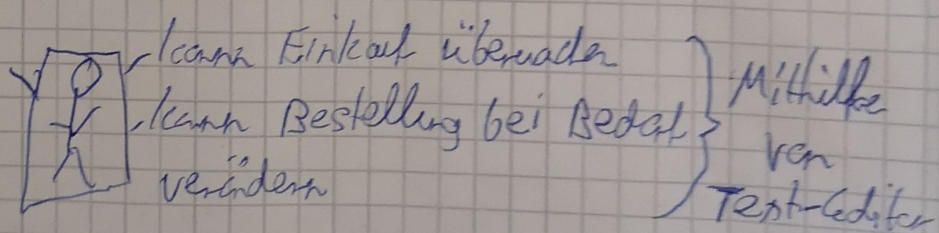 kann Einkauf überwachen
kann Bestellung bei Bedarf
verändern
Mithilfe
von
Text-Editor